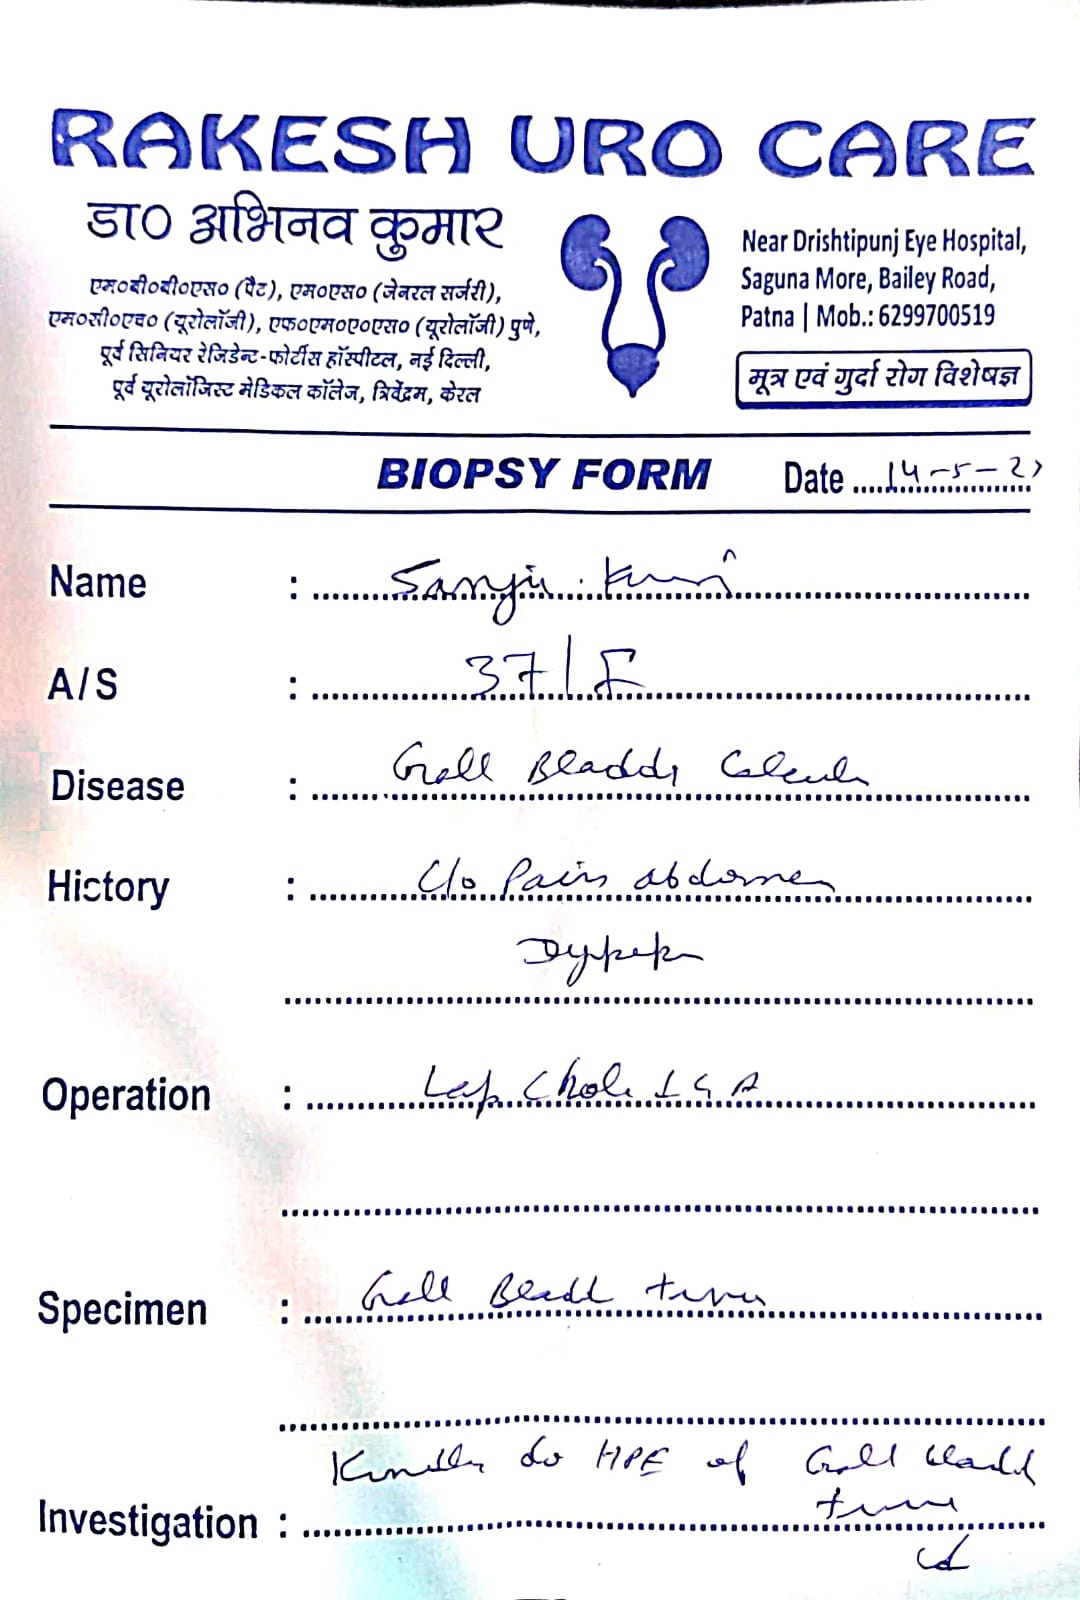 RAKESH URO CARE
डा० अभिनव कुमार
एम०बी०बी०एस० (पैट), एम०एस० (जेनरल सर्जरी),
एम०सी०एच० (यूरोलॉजी), एफ०एम०ए०एस० (यूरोलॉजी) पुणे,
पूर्व सिनियर रेजिडेन्ट-फोर्टीस हॉस्पीटल, नई दिल्ली,
पूर्व यूरोलॉजिस्ट मेडिकल कॉलेज, त्रिवेंद्रम, केरल
Near Drishtipunj Eye Hospital,
Saguna More, Bailey Road,
Patna | Mob.: 6299700519
मूत्र एवं गुर्दा रोग विशेषज्ञ
BIOPSY FORM Date 14-5-2
Name :
A/S : 37/F
Disease : Gall Bladder
Hictory : C/o Pain abdomen
Operation : Lap Chole
Specimen : Gall Bladd
Kindly do HPE of Gall bladd
Investigation :